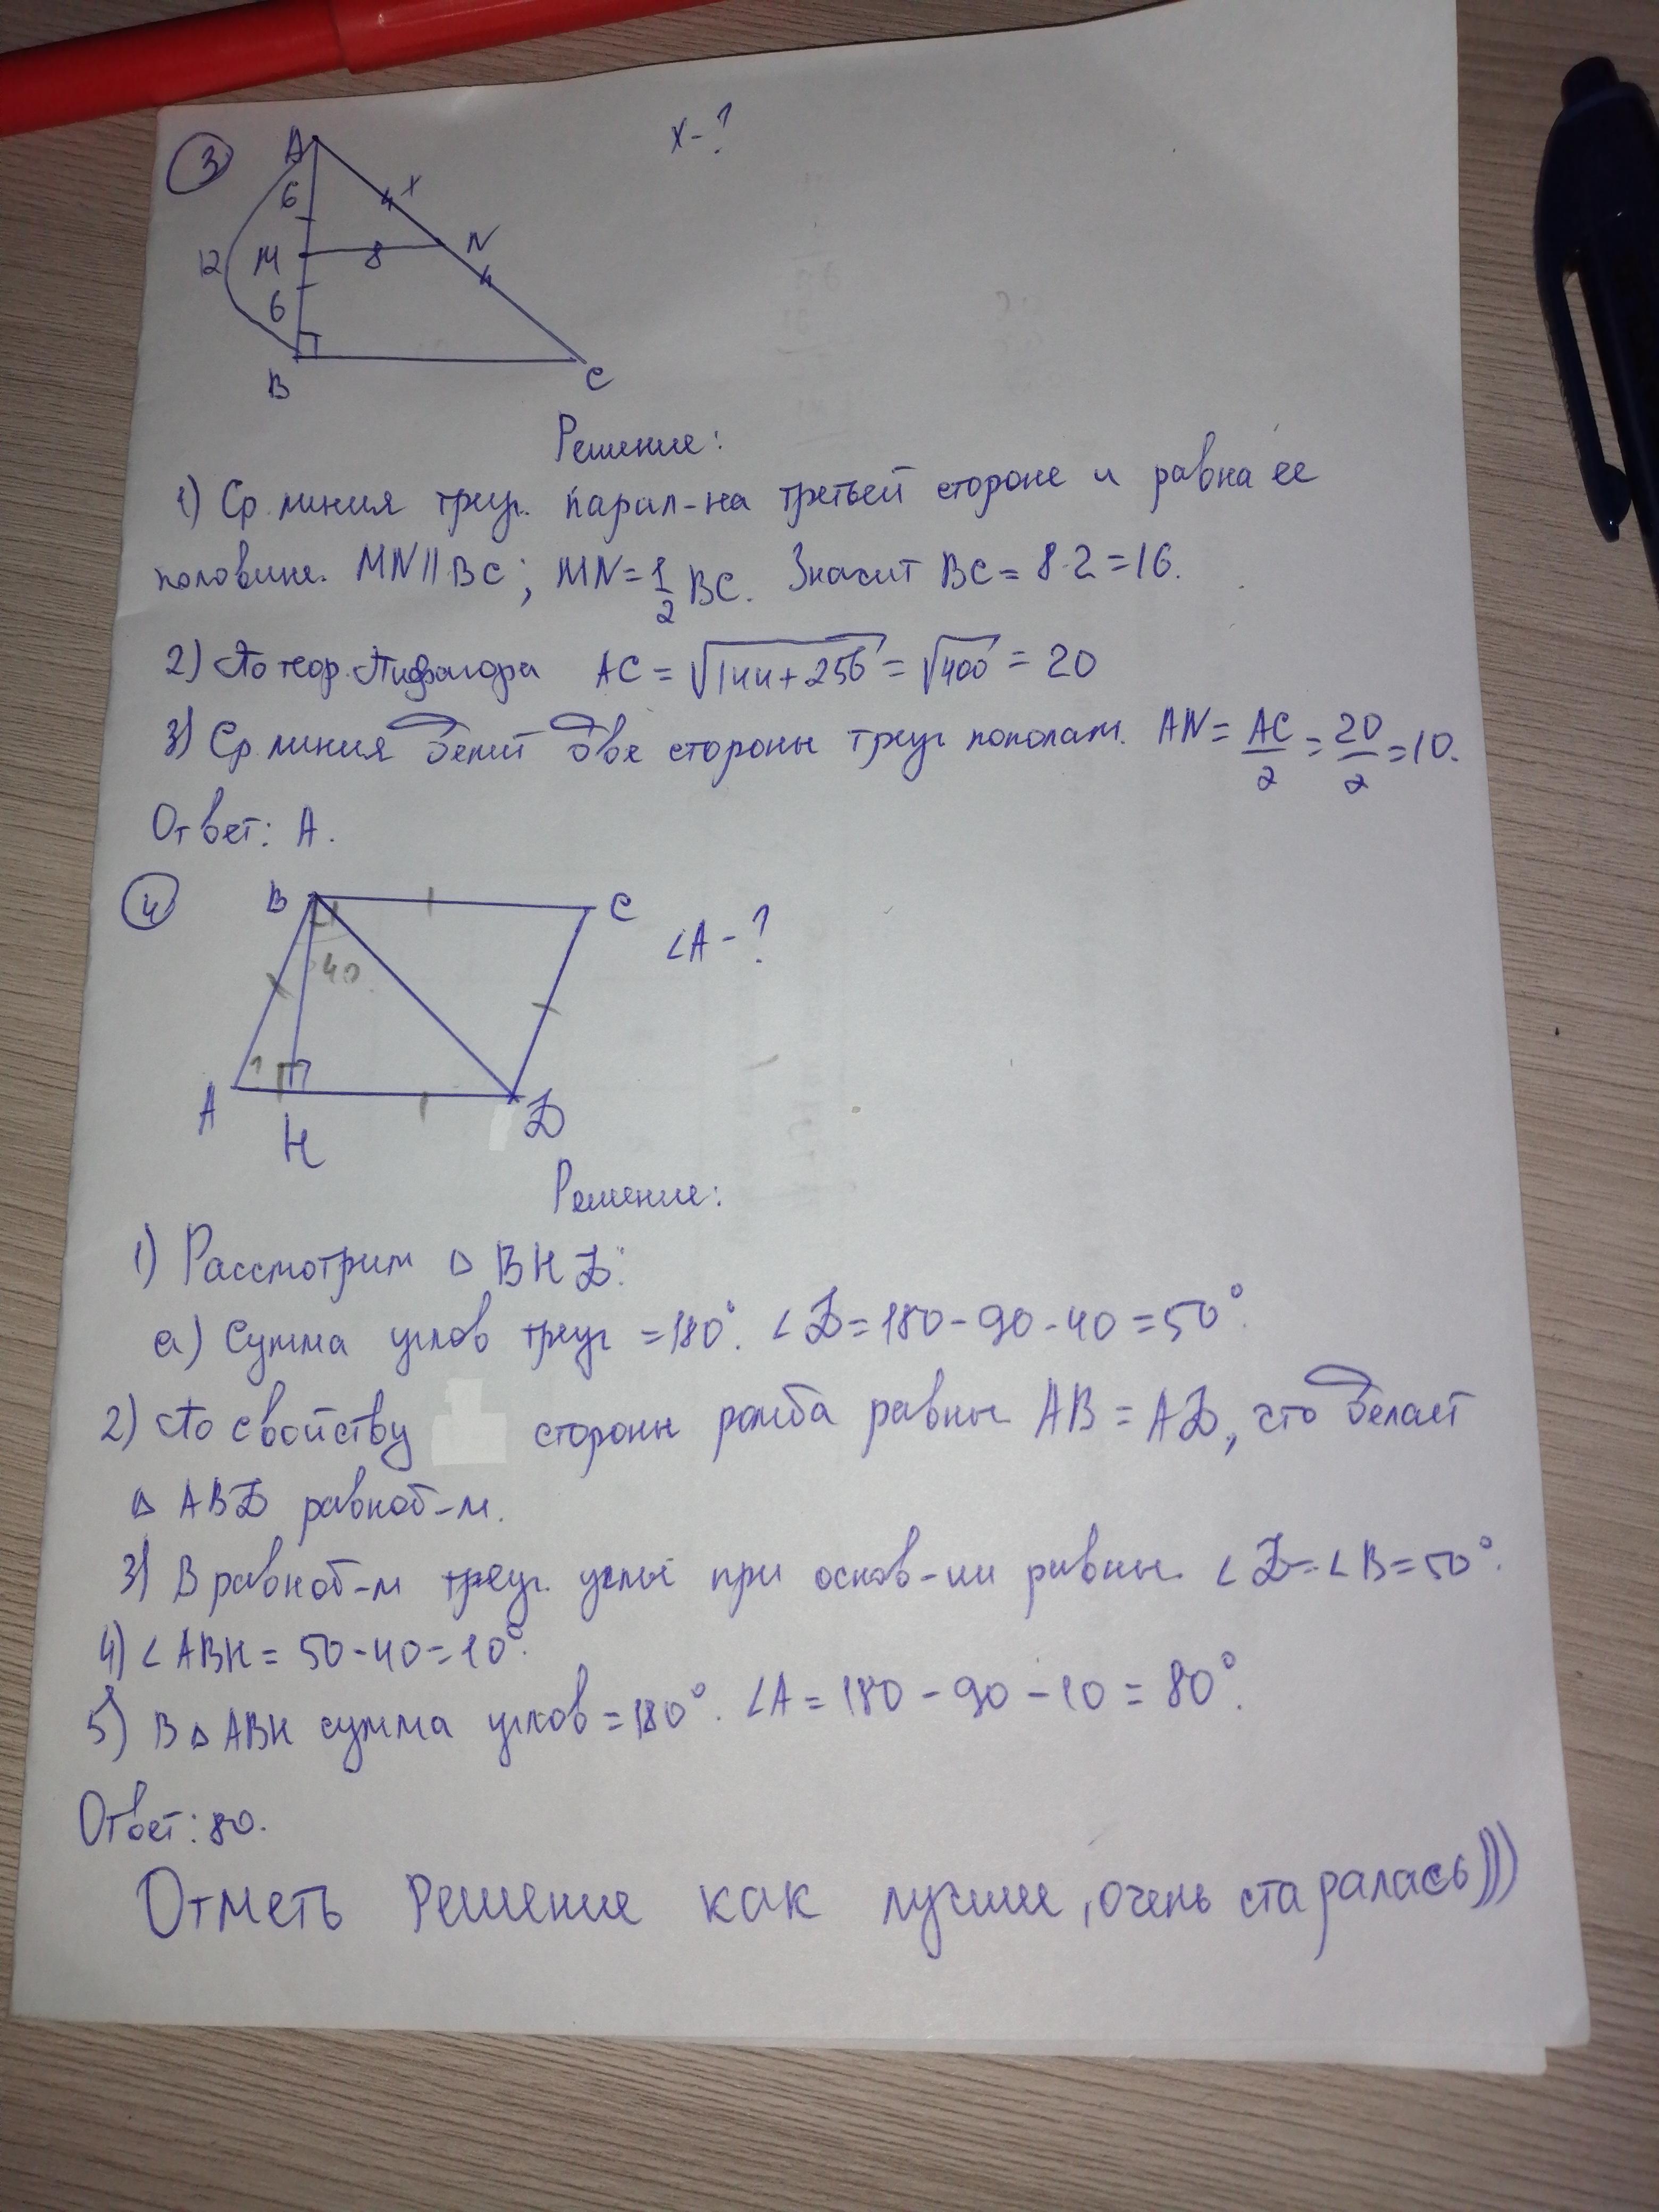 3
x-?
A
6
x
12
M
8
N
6
B
C
Решение:
1) Ср. линия треуг. парал-на третьей стороне и равна ее
половине. MN||BC; MN=1/2 BC. Значит BC=8·2=16.
2) По теор. Пифагора AC=√144+256=√400=20
3) Ср. линия делит две стороны треуг пополам. AN=AC/2=20/2=10.
Ответ: А.
4
B
C
∠A-?
40
?
A
H
D
Решение:
1) Рассмотрим △ BHD:
а) Сумма углов треуг =180°. ∠D=180-90-40=50°.
2) По свойству стороны ромба равны AB=AD, что делает
△ ABD равноб-м.
3) В равноб-м треуг. углы при основ-ии равны. ∠D=∠B=50°.
4) ∠ABH=50-40=10°.
5) В △ ABH сумма углов=180°. ∠A=180-90-10=80°.
Ответ: 80.
Отметь Решение как лучшее, очень старалась)))